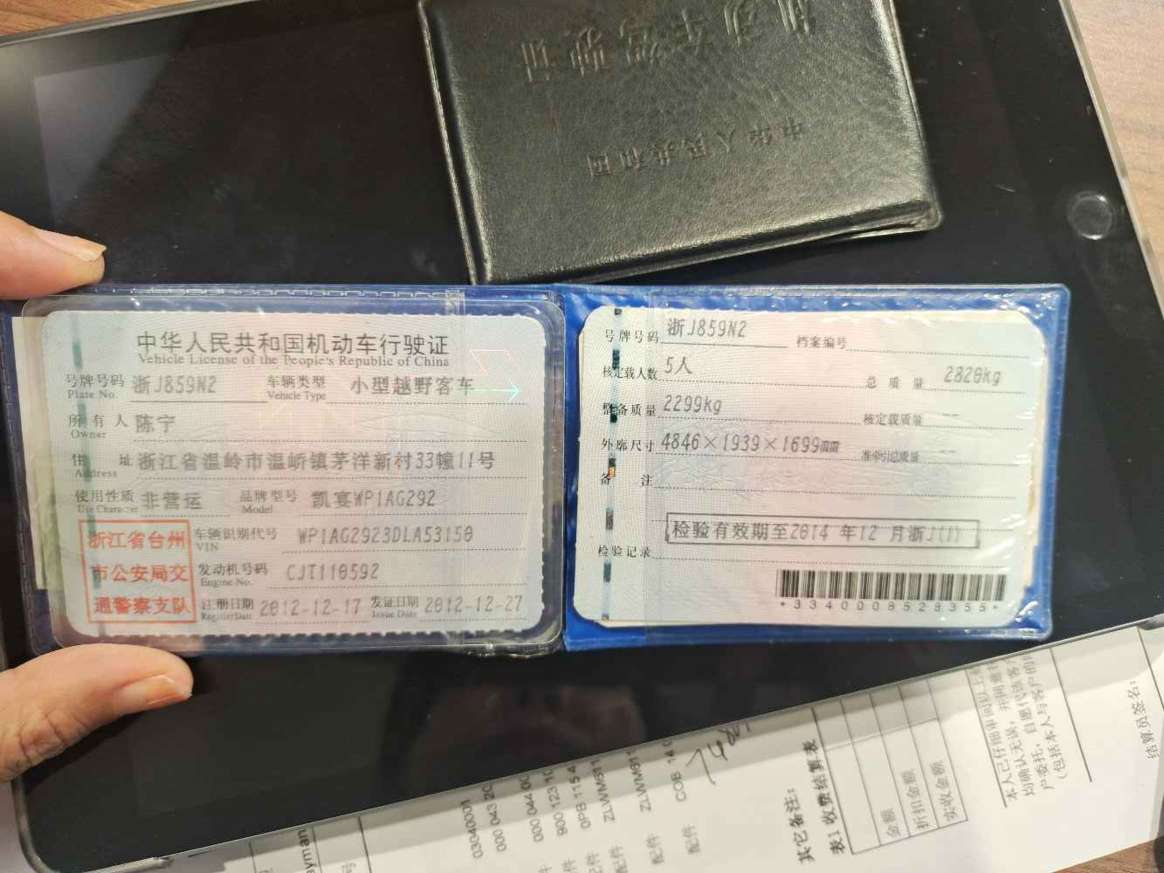 机动车驾驶证
中华人民共和国
中华人民共和国机动车行驶证
Vehicle License of the People's Republic of China
号牌号码 浙J859N2 车辆类型 小型越野客车
Plate No. Vehicle Type
所有人 陈宁
Owner
住址 浙江省温岭市温峤镇茅洋新村33幢11号
Address
使用性质 非营运 品牌型号 凯宴WP1AG292
Use Character Model
浙江省台州
市公安局交
通警察支队
车辆识别代号 WP1AG2923DLA53150
VIN
发动机号码 CJT110592
Engine No.
注册日期 2012-12-17 发证日期 2012-12-27
Register Date Issue Date
号牌号码 浙J859N2 档案编号
核定载人数 5人 总质量 2820kg
整备质量 2299kg 核定载质量 --
外廓尺寸 4846×1939×1699 准牵引总质量 --
备注
检验有效期至2014 年12 月浙J(1)
检验记录
*3340008528355*
结算员签名:
本人已仔细审阅以上
(包括本人与客户的
金额
折扣金额
实收金额
其它备注:
表1 收费结算表
配件
配件
配件
03040001
000 043 20
000 044 00
900 123 10